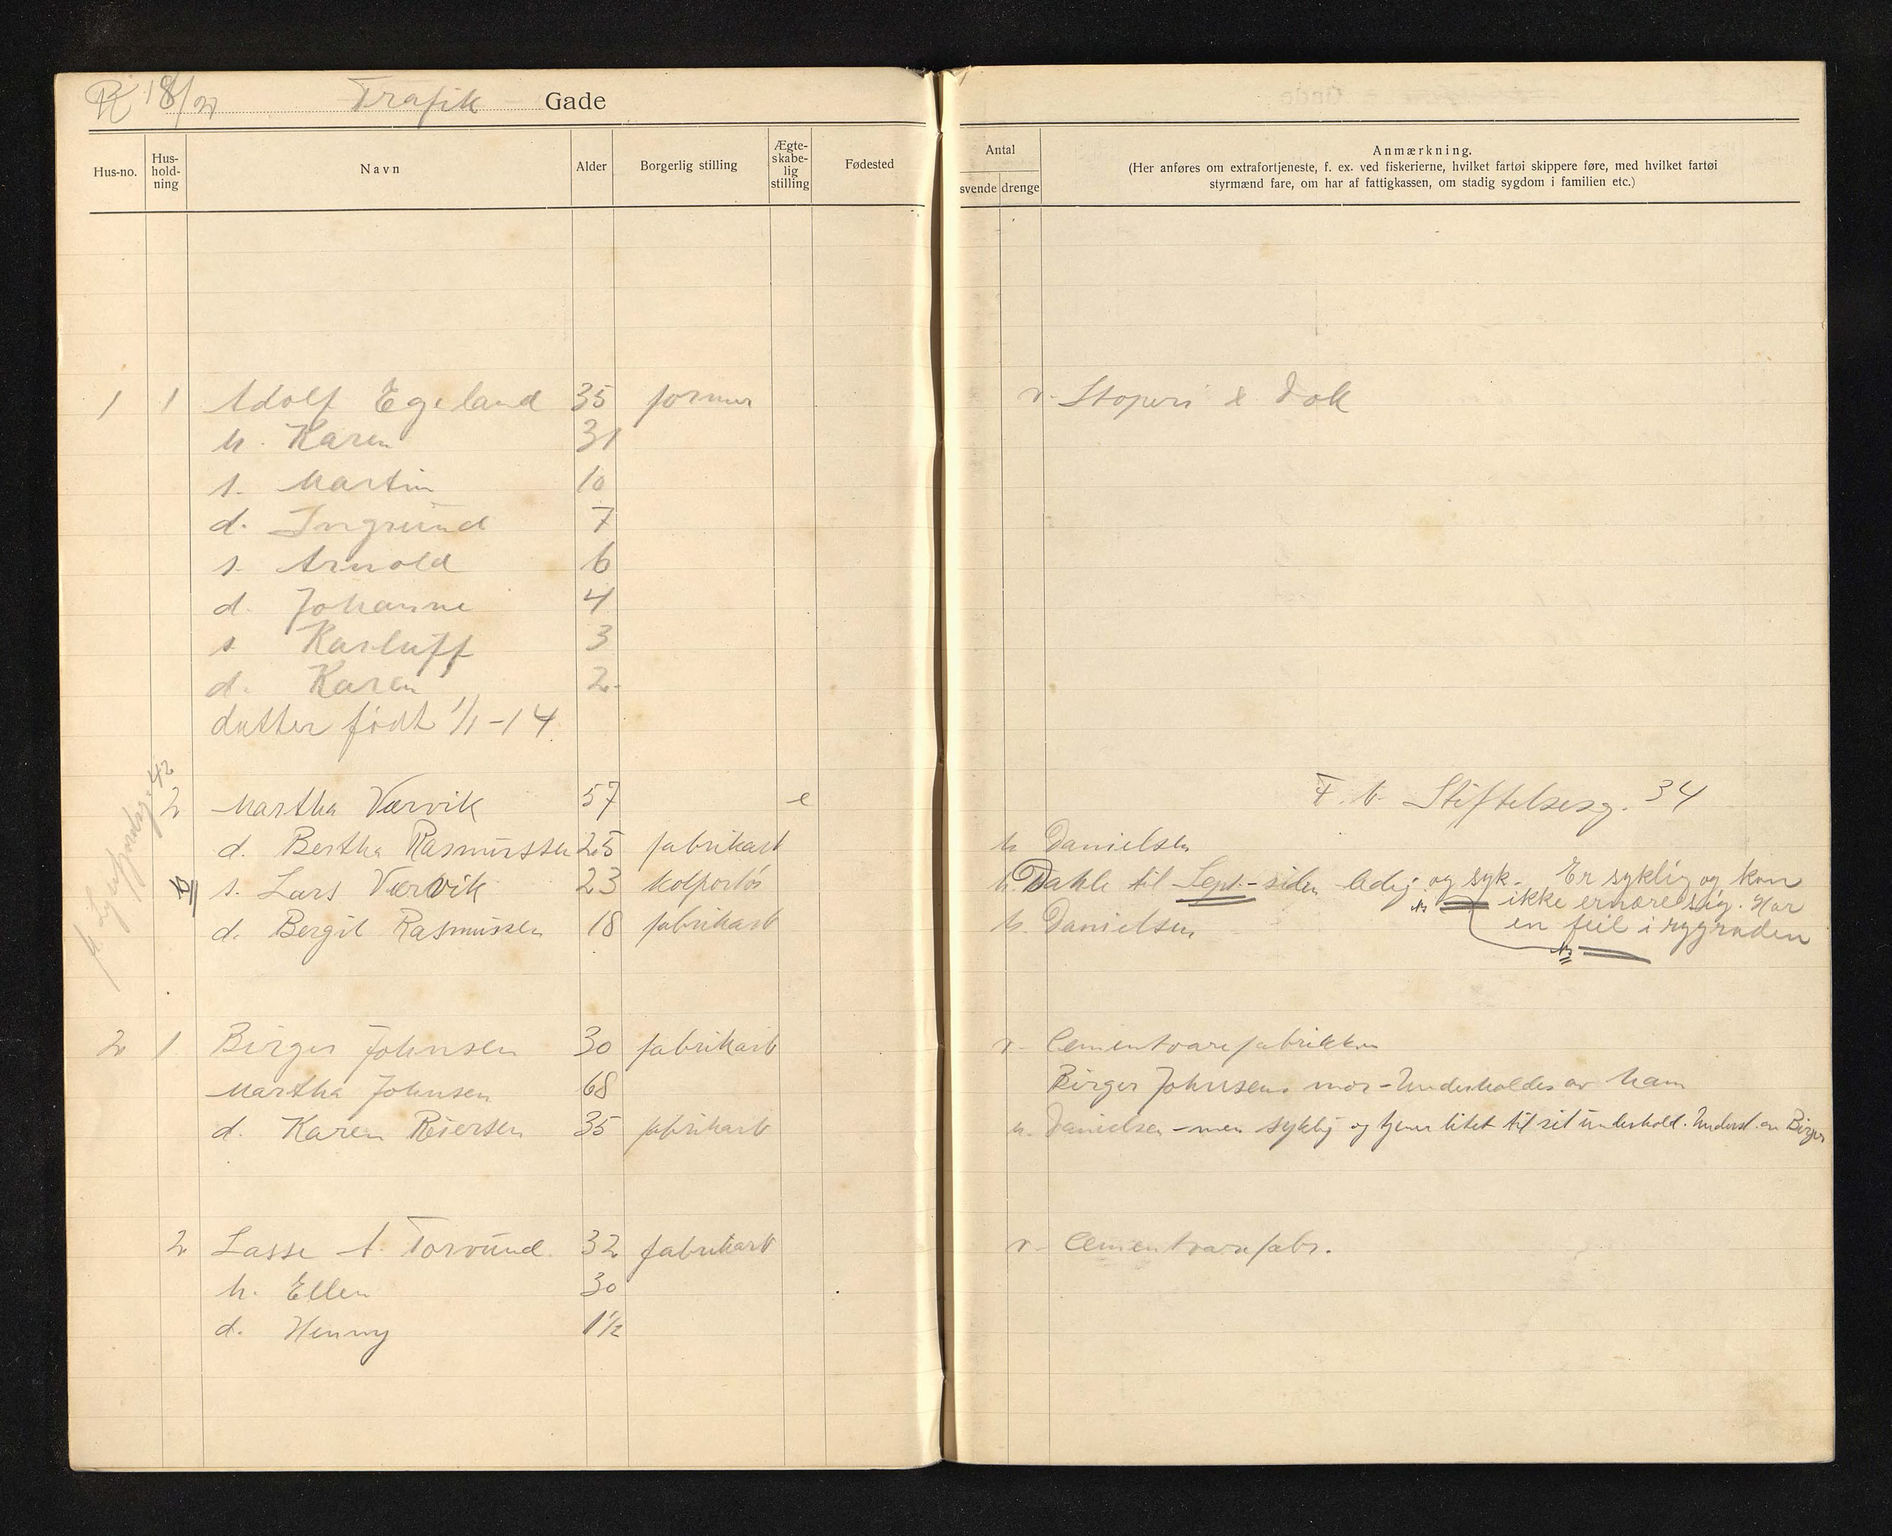 18/2 Trafik Gade
Hus-no. Hus-hold-ning Navn Alder Borgerlig stilling Ægte-skabe-lig stilling Fødested
Antal svende drenge Anmærkning.
(Her anføres om extrafortjeneste, f. ex. ved fiskerierne, hvilket fartøi skippere føre, med hvilket fartøi
styrmænd fare, om har af fattigkassen, om stadig sygdom i familien etc.)
1 1 Adolf Egeland 35 former v. Støperi & Dok
h. Karen 31
s. Martin 10
d. Ingrund 7
s. Arnold 6
d. Johanne 4
s Karluff 3
d. Karen 2
datter født 1/1-14
2 Martha Værvik 57 e F. b. Stiftelsesg. 34
d. Bertha Rasmussen 25 fabrikarb h. Danielsen
s. Lars Værvik 23 kolportør h. Dahle til Sept.-siden ledig og syk. Er syklig og kan
ikke ernære sig. Har
d. Bergit Rasmussen 18 fabrikarb h. Danielsen en feil i rygraden
2 1 Birger Johnsen 30 fabrikarb v. Cementvarefabrikken
Martha Johnsen 68 Birger Johnsens mor - Underholdes av ham
d. Karen Reiersen 35 fabrikarb h. Danielsen - men syklig og tjener litet til sit underhold. Underst. av Birger
2 Lasse A. Torvund 32 fabrikarb v. Cementvarefabr.
h. Ellen 30
d. Henny 1 1/2